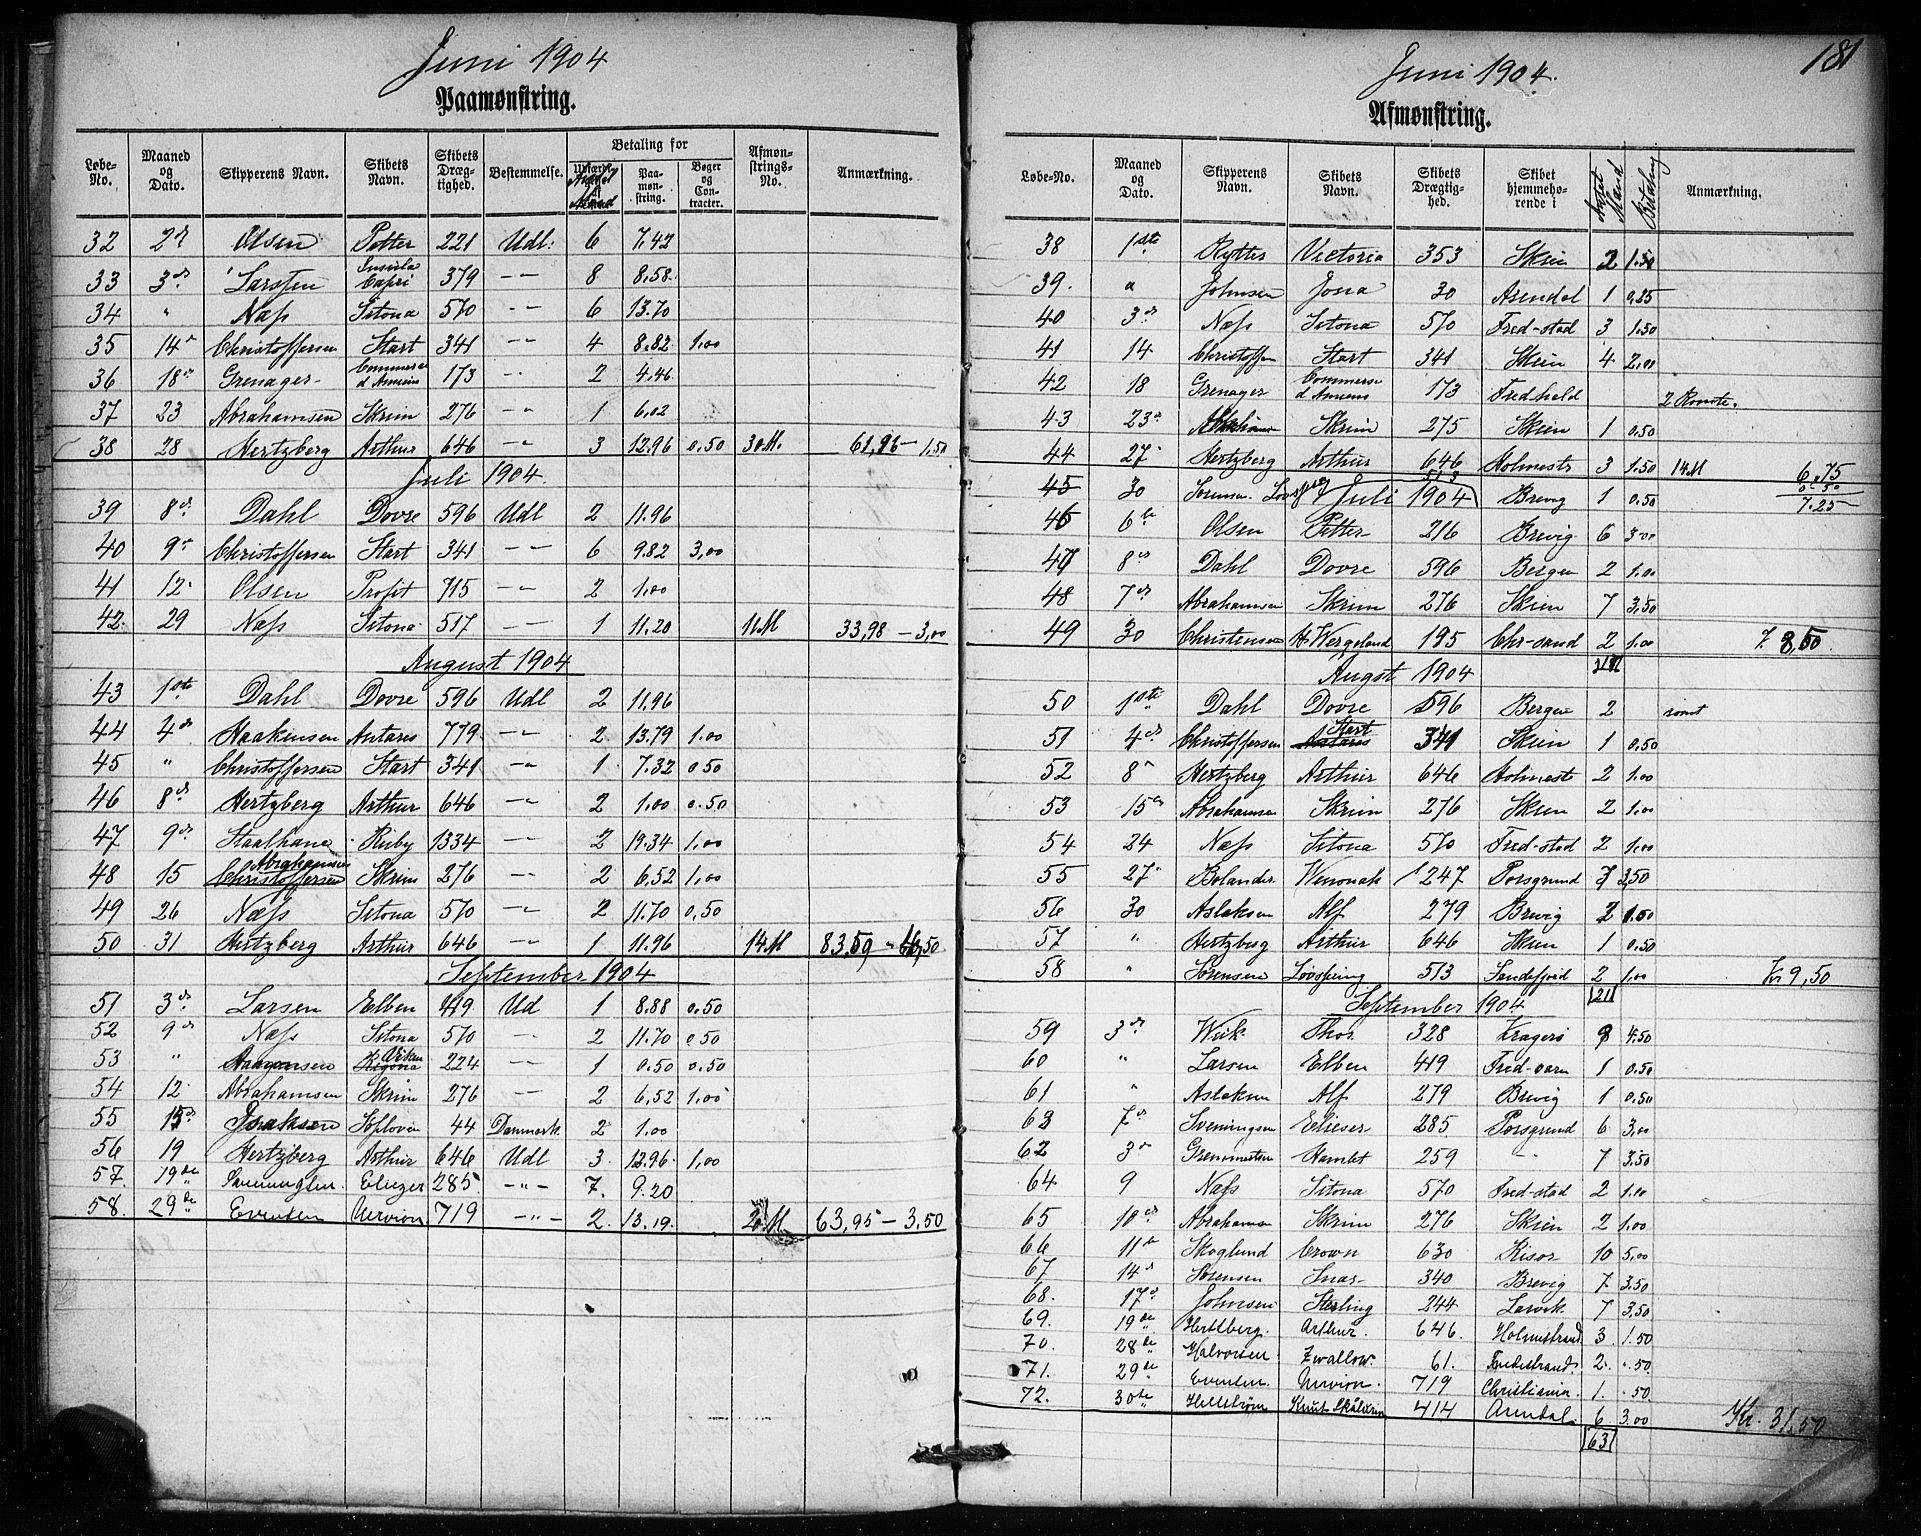 Juni 1904
Paamønstring.
Løbe-No. | Maaned og Dato. | Skipperens Navn. | Skibets Navn. | Skibets Dræg-tighed. | Bestemmelse. | Betaling for | Antal Mand | Paa-møn-string. | Bøger og Con-tracter. | Afmøn-strings-No. | Anmærkning.
32 2 Olsen Petter 221 Udl: 6 7.42
33 3 Larssen Insula Capri 379 -"- 8 8.58
34 " Næss Sitona 570 -"- 6 13.70
35 14 Christoffersen Start 341 -"- 4 8.82 1,00
36 18 Grenager 173 2 4.46
37 23 Abrahamsen Skrim 276 -"- 1 6,02
38 28 Hertzberg Arthur 646 -"- 3 12.96 0,50 30M. 1,50
Juli 1904
39 8 Dahl Dovre 596 Udl 2 11.96
40 9 Christoffersen Start 341 -"- 6 9.82 3,00
41 12 Olsen Profit 715 -"- 2 1.00
42 29 Næss Sitona 517 -"- 1 11.20 11M 33,98 - 3,00
August 1904
43 1ste Dahl Dovre 596 Udl 2 11,96
44 4 Haakensen Antares 779 -"- 2 13.79 1.00
45 " Christoffersen Start 341 -"- 1 7.32 0,50
46 8 Hertzberg Arthur 646 -"- 2 1.00 0.50
47 9 Ruby 1334 -"- 2 19.34 1,00
48 15 Christoffersen Abrahamsen Skrim 276 -"- 2 6,52 1,00
49 26 Næss Sitona 570 -"- 2 11.70 0,50
50 31 Hertzberg Arthur 646 -"- 1 11.96 14M 83.59
September 1904
51 3 Larsen Elben 419 Ud 1 8.88 0.50
52 9 Næss Sitona 570 -"- 2 11.70 0,50
53 " 224 -"- 1 0.50 0,50
54 12 Abrahamsen Skrim 276 -"- 2 6,52 1,00
55 15 Isaksen 44 Danmark 2 1.00
56 19 Hertzberg Arthur 646 Udl 3 12.96 1,00
57. 19de Eliezer 285 -"- 7. 9.20
58. 29de Evensen 719 -"- 2. 13.19. 63,95 - 3,50
181
Juni 1904.
Afmønstring.
Løbe-No. | Maaned og Dato. | Skipperens Navn. | Skibets Navn. | Skibets Drægtig-hed. | Skibet hjemmehø-rende i | Antal Mand | Betaling | Anmærkning.
38 1ste Victoria 353 Skien 2 1.50
39. " Johnsen Jona 30 Arendal 1 0,25
40 3 Næss Sitona 570 Fred-stad 3 1.50
41 14 Start 341 Skien 4 2,00
42 18 Grenager 173 Fredhald
43 23 Skrim 275 Skien 1 0.50
44 27 Hertzberg Arthur 646 Holmestr 3 1.50 14M 6,75
45 30 Sørensen 513 Brevig 1 0.50 0.50
7.25
Juli 1904
46 6 Olsen Petter 216 Brevig 6 3,00
47 8 Dahl Dovre 596 Bergen 2 1.00
48 7 Abrahamsen Skrim 276 Skien 7 3,50
49 30 Christensen H. Wergeland 195 Chr-sand 2 1.00 8,50
Augst 1904
50 1ste Dahl Dovre 596 Bergen 2
51 4 Christoffersen Start 341 Skien 1 0.50
52 8 Hertzberg Arthur 646 Holmest 2 1.00
53 15 Abrahamsen Skrim 276 Skien 2 1.00
54 24 Næss Sitona 570 Fred-stad 2 1.00
55 27 Bolander Winonah 1247 Porsgrund 7 3,50
56 30 Aslaksen Alf 279 Brevig 2 1.00
57 " Hertzberg Arthur 646 Skien 1 0.50
58 " Sørensen Løvspring 513 Sandefjord 2 1,00 Kr 9,50
21
September 1904
59 3 Wiik Thor 328 Kragerø 9 4,50
60 " Larsen Elben 419 Fred-værn 1 0.50
61 " Aslaksen Alf 279 Brevig 1 0.50
63 7 Sveningsen Elieser 285 Porsgrund 6 3,00
62 3 Hamlet 259 " 7 3,50
64 9 Næss Sitona 570 Fred-stad 2 1.00
65 10 Abrahamsen Skrim 276 Skien 2 1.00
66 11 Skoglund Crown 630 Risør 10 5,00
67 14 Sørensen Snar 340 Brevig 7 3.50
68. 17 Johnsen Sterling 244 Larvik 7 3,50
69. 19de Hertzberg. Arthur. 646. Holmestrand 3. 1.50
70. 28de Halvorsen Zwallow 61. 2. .50
71. 29de Evensen 719 Christiania. 1. .50
72. 30te Hellstrøm 414 Arendal 6 3.00 Kr. 31,50
63